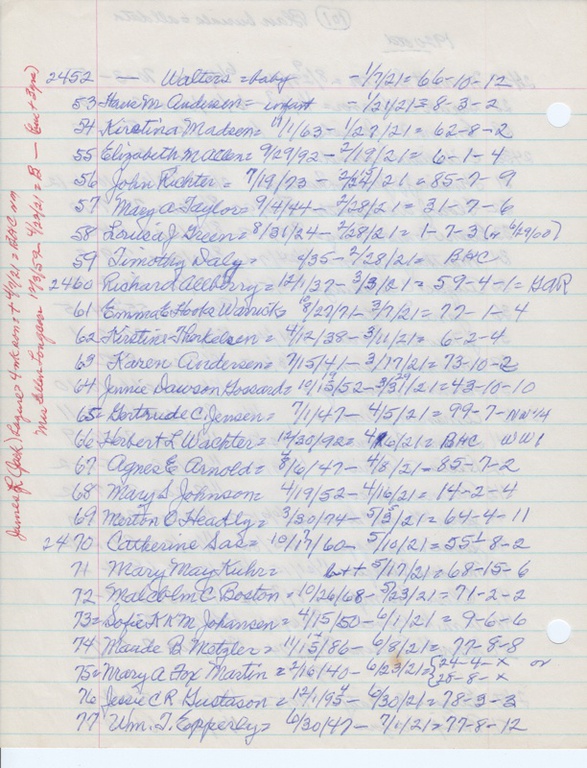 2452 — Walters = baby - 1/7/21 = 66-10-12
53 Hans M Andersen = infant - 1/21/21 = 8-3-2
54 Kirstina Madsen = 1/63 - 1/27/21 = 62-8-2
55 Elizabeth M Allen = 9/29/92 - 2/19/21 = 6-1-4
56 John Richter = 7/19/73 - 21 = 85-7-9
57 Mary A Taylor = 9/4/44 - 2/28/21 = 31-7-6
58 Louisa J Green = 8/31/24 - 2/28/21 = 1-7-3 (or 6/29/00)
59 Timothy Daly = 4/35 - 2/28/21 = BHC
2460 Richard Allberry = 12/1/37 - 3/3/21 = 59-4-1 = GAR
61 Emma E Hooks Warrick 27/71 - 3/7/21 = 77-1-4
62 Kirstine Therkelsen = 4/12/38 - 3/11/21 = 6-2-4
63 Karen Andersen = 7/15/41 - 3/17/21 = 73-10-2
64 Jennie Dawson Gossard = 52 - 21 = 43-10-10
65 = Gertrude C Jensen = 7/1/47 - 4/5/21 = 99-7-NW 1/4
66 Herbert L Wachter = 12/30/92 = 4/6/21 = BHC WW1
67 Agnes E Arnold = /6/47 - 4/8/21 = 85-7-2
68 Mary S Johnson = 4/19/52 - 4/16/21 = 14-2-4
69 Merton O Headly = 3/30/74 - 21 = 64-4-11
2470 Catherine Sas = 10/17/60 - 5/10/21 = 55-8-2
71 Mary May Kuhr = 5/17/21 = 68-15-6
72 = Malcolm C Boston = 10/26/68 - 5/23/21 = 71-2-2
73 = Sofie K K M Johansen = 4/15/50 - 6/1/21 = 9-6-6
74 Maude B Metzler = 11/15/86 - 6/8/21 = 77-8-8
75 = Mary A Fox Martin = 2/16/40 - 6/23/21 = { 24-4-x or
28-8-x
76 Jessie C R Gustason = 12/1/95 - 6/30/21 = 78-3-3
77 Wm. T. Epperly = 6/30/47 - 7/1/21 = 77-8-12
James R (Jack) = 4 4/7/21 = BHC
Mrs Ellen 59 - 4/27/21 = B —
1920